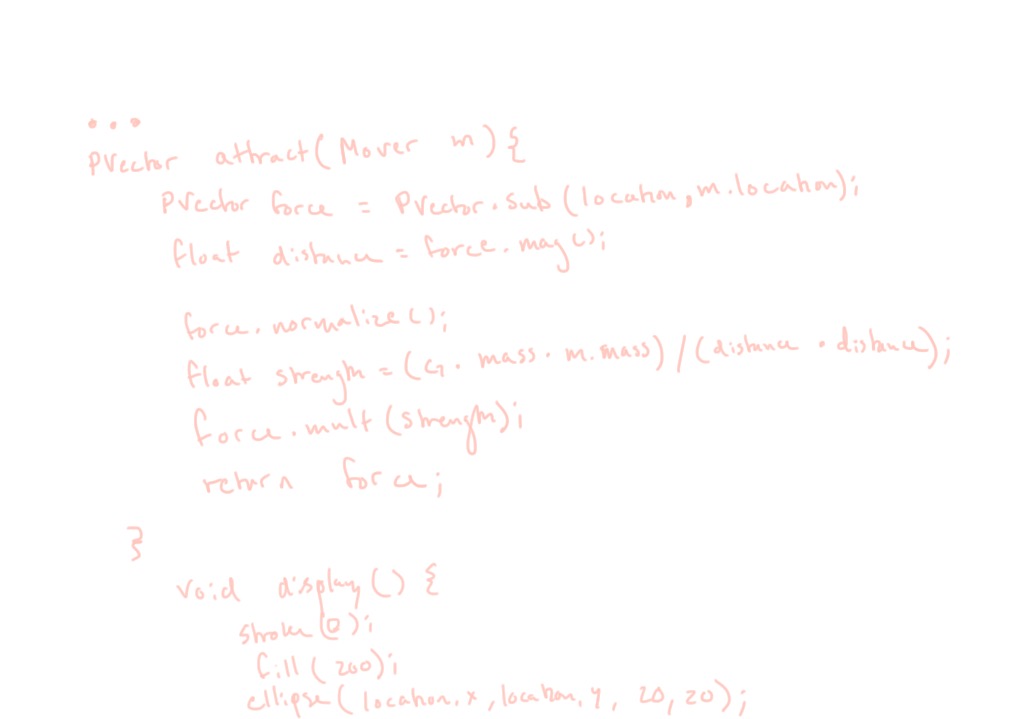 ...
PVector attract(Mover m) {
PVector force = PVector.sub(location, m.location);
float distance = force.mag();
force.normalize();
float strength = (G · mass · m.mass) / (distance · distance);
force.mult(strength);
return force;
}
void display() {
stroke(0);
fill(200);
ellipse(location.x, location.y, 20, 20);